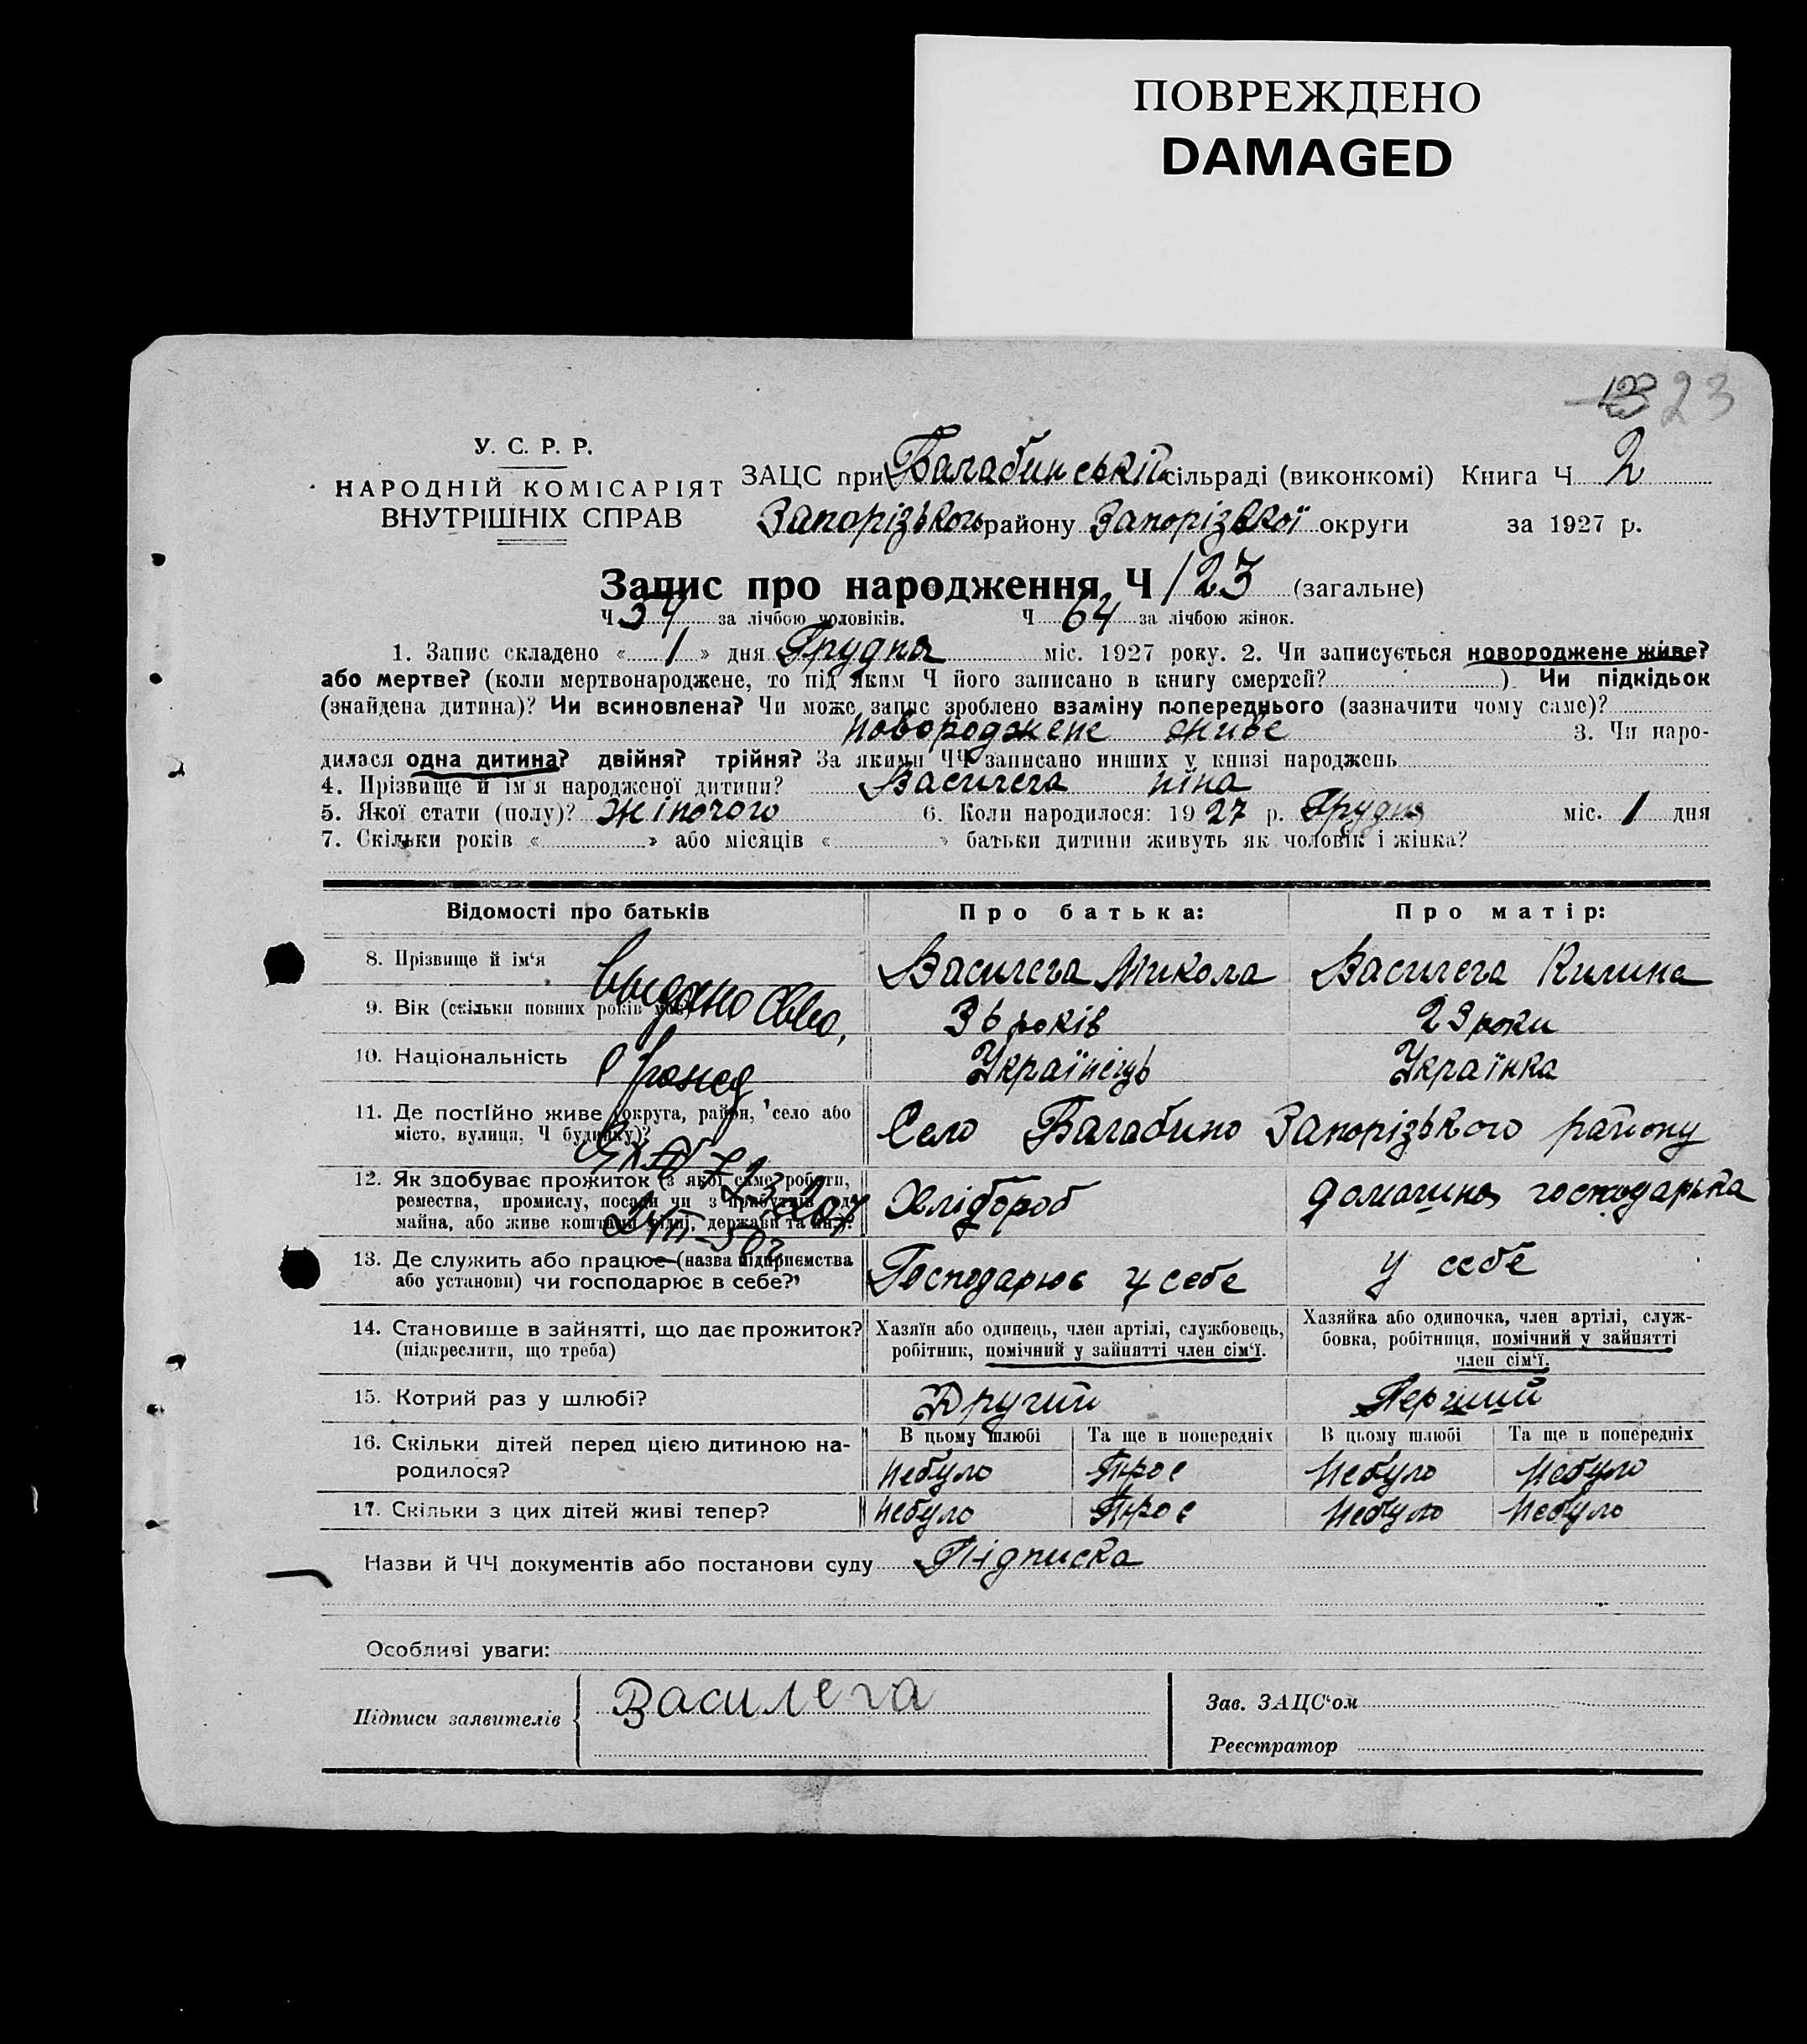 ПОВРЕЖДЕНО
DAMAGED
23
У. С. Р. Р.
НАРОДНІЙ КОМІСАРІЯТ
ВНУТРІШНІХ СПРАВ
ЗАЦС при Балабинській сільраді (виконкомі) Книга Ч 2
Запорізького району Запорізької округи за 1927 р.
Запис про народження Ч 123 (загальне)
Ч 59 за лічбою чоловіків. Ч 64 за лічбою жінок.
1. Запис складено « 1 » дня Грудня міс. 1927 року. 2. Чи записується новороджене живе?
або мертве? (коли мертвонароджене, то під яким Ч його записано в книгу смертей? ) Чи підкідьок
(знайдена дитина)? Чи всиновлена? Чи може запис зроблено взаміну попереднього (зазначити чому саме)?
новороджене живе 3. Чи наро-
дилася одна дитина? двійня? трійня? За якими ЧЧ записано инших у книзі народжень
4. Прізвище й ім'я народженої дитини? Василега ніна
5. Якої стати (полу)? жіночого 6. Коли народилося: 1927 р. Грудня міс. 1 дня
7. Скільки років « » або місяців « » батьки дитини живуть як чоловік і жінка?
Відомості про батьків Про батька: Про матір:
8. Прізвище й ім'я Василега Микола Василега Килина
9. Вік (скільки повних років має) 36 років 29 роки
Выдано свво,
10. Національність Українець Українка
о рожд
11. Де постійно живе (округа, район, село або
місто, вулиця, Ч будинку)? Село Балабино Запорізького району
12. Як здобуває прожиток (з якої саме роботи,
ремества, промислу, посади чи з прибутків од
майна, або живе коштами рідні, держави та ин.)? Хлібороб домашня господарька
13. Де служить або працює (назва підприємства
або установи) чи господарює в себе? Господарює у себе у себе
14. Становище в зайнятті, що дає прожиток?
(підкреслити, що треба)
Хазяїн або одинець, член артілі, службовець,
робітник, помічний у зайнятті член сім'ї.
Хазяйка або одиночка, член артілі, служ-
бовка, робітниця, помічний у зайнятті
член сім'ї.
15. Котрий раз у шлюбі? Другий Перший
16. Скільки дітей перед цією дитиною на-
родилося?
В цьому шлюбі Та ще в попередніх В цьому шлюбі Та ще в попередніх
Небуло Троє Небуло Небуло
17. Скільки з цих дітей живі тепер? Небуло Троє Небуло Небуло
Назви й ЧЧ документів або постанови суду Підписка
Особливі уваги:
Підписи заявителів Василега
Зав. ЗАЦС'ом
Реєстратор